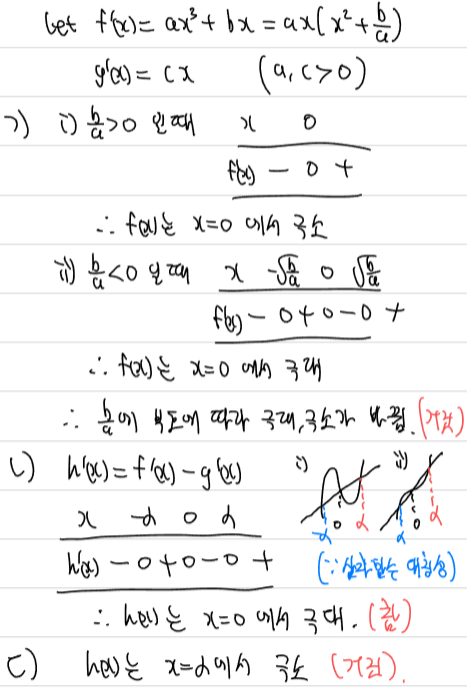 Let f'(x) = ax³ + bx = ax(x² + b/a)
g'(x) = cx (a, c > 0)
ㄱ) i) b/a > 0 일 때 x 0
f'(x) − 0 +
∴ f(x)는 x=0 에서 극소
ii) b/a < 0 일 때 x -√b/a 0 √b/a
f'(x) − 0 + 0 − 0 +
∴ f(x)는 x=0 에서 극대
∴ b/a의 부호에 따라 극대, 극소가 바뀜. (거짓)
ㄴ) h'(x) = f'(x) − g'(x) i) ii)
x -α 0 α -α 0 α α 0 α
h'(x) − 0 + 0 − 0 + (∵ 삼차함수 대칭성)
∴ h(x)는 x=0 에서 극대. (참)
ㄷ) h(x)는 x=α에서 극소 (거짓).